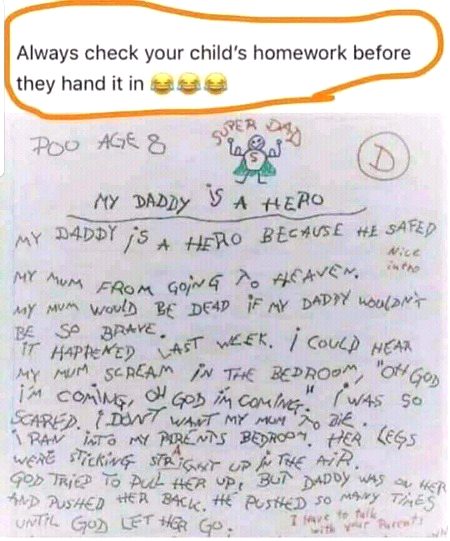 Always check your child's homework before
they hand it in 😂😂😂
POO AGE 8
SUPER DAD
S
D
MY DADDY iS A HERO
MY DADDY iS A HERO BECAUSE HE SAFED
Nice
intro
MY MUM FROM GOiNG TO HEAVEN.
MY MUM WOULD BE DEAD iF MY DADDY WOULDN'T
BE SO BRAVE.
iT HAPPENED LAST WEEK. i COULD HEAR
MY MUM SCREAM iN THE BEDROOM, "OH GOD
i'M COMiNG, OH GOD iM COMiNG." i WAS SO
SCARED. i DON'T WANT MY MUM TO DiE.
i RAN iNTO MY PARENTS BEDROOM. HER LEGS
WERE STiCKiNG STRAiGHT UP iN THE AiR.
GOD TRiED TO PULL HER UP, BUT DADDY WAS ON HER
AND PUSHED HER BACK. HE PUSHED SO MANY TiMES
UNTiL GOD LET HER GO.
I have to talk
with your Parents